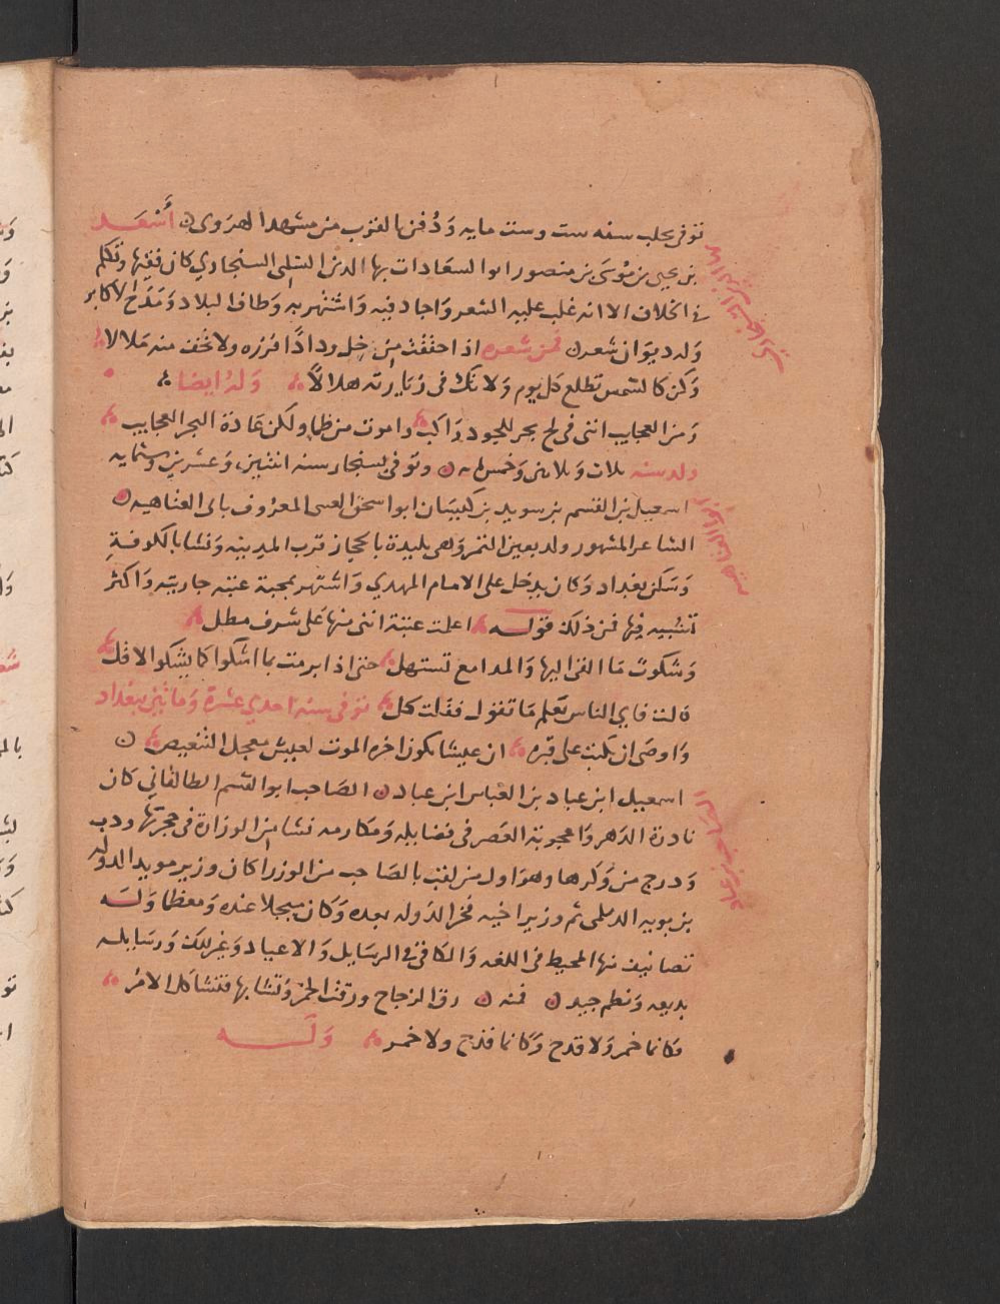 توفى بحلب سنه ست وست مايه وَدُفن بالقرب من مشهد الهروى أَسْعَد
بن يحيى بن مُوسَى بن منصور ابو السعادات بها الدين السلمى السنجاري كان فقيها وتكلم
فى الخلاف الا انه غلب عليه الشعر وَاجاد فيه وَاشتهر به وَطاف البلاد وَمَدَح الاكابر
وَله ديوَان شعر فمن شعره اذا حققْت من خِل ودادًا فزره ولا تخف منه مَلالا
وَكن كالشمس تطلع كل يوم وَلا تك فى زيارته هلالاً وَلهُ ايضا
وَمن العجايب اننى فى لج بحر الجود رَاكب واموت من ظما ولكن عَادَة البحر العجايب
ولد سنه ثلاث وَثلاثين وَخمس مايه وتوفى بسنجار سنه اثنتين وَعشرين وستمايه
اسمعيل بن القسم بن سويد بن كيسَان ابو اسحق العنبى المعرُوف بابى العتاهيه
الشاعر المشهور ولد بعين التمر وَهى بليدة بالحجاز قرب المدينه وَنشا بالكوفةِ
وَسكن بغداد وَكان يدخل على الامام المهدي وَاشتهر بمحبة عتبه جاريته وَاكثر
تشبيبه فيها فمن ذلك قوله اعلمت عتبة اننى منها عَلى شرف مطل
وَشكوت مَا القى اليها وَالمدامع تستهل حتى اذا برمت بما اشكوا كما يشكوا الاقل
قالت فاي الناس يَعلم مَا تقول فقلت كل توفى سنه احدي عشرة وَماتين ببغداد
وَاوصى ان يكتب على قبره ان عيشا يكون اخره الموت لعيش معجل التنغيص
اسمعيل ابن عباد بن العباس ابن عباد الصَاحب ابو القسم الطالقاني كان
نادرة الدَهر وَاعجوبة العَصر فى فضايله وَمكارمه نشا من الوزارَة فى حجرها ودب
وَدرج من وَكرها وهوَ اول من لقب بالصَاحب من الوزرا كان وزير مويد الدوله
بن بويه الديلمى ثم وزير اخيه فخر الدَوله بعده وَكان مبجلا عنده وَمعظما وَلَه
تصانيف منها المحيط فى اللغه وَالكافى فى الرسَايل وَالاعياد وَغير ذلك وَرسَايله
بديعه وَنظم جيد فمنه رق الزجاج ورقت الخمر وَتشابها فتشاكل الامُر
فكانما خمر وَلا قدح وَكانما قدح ولا خمر وَلَه
البها السنجاري
ابو العتاهيه
الصاحب بن عباد